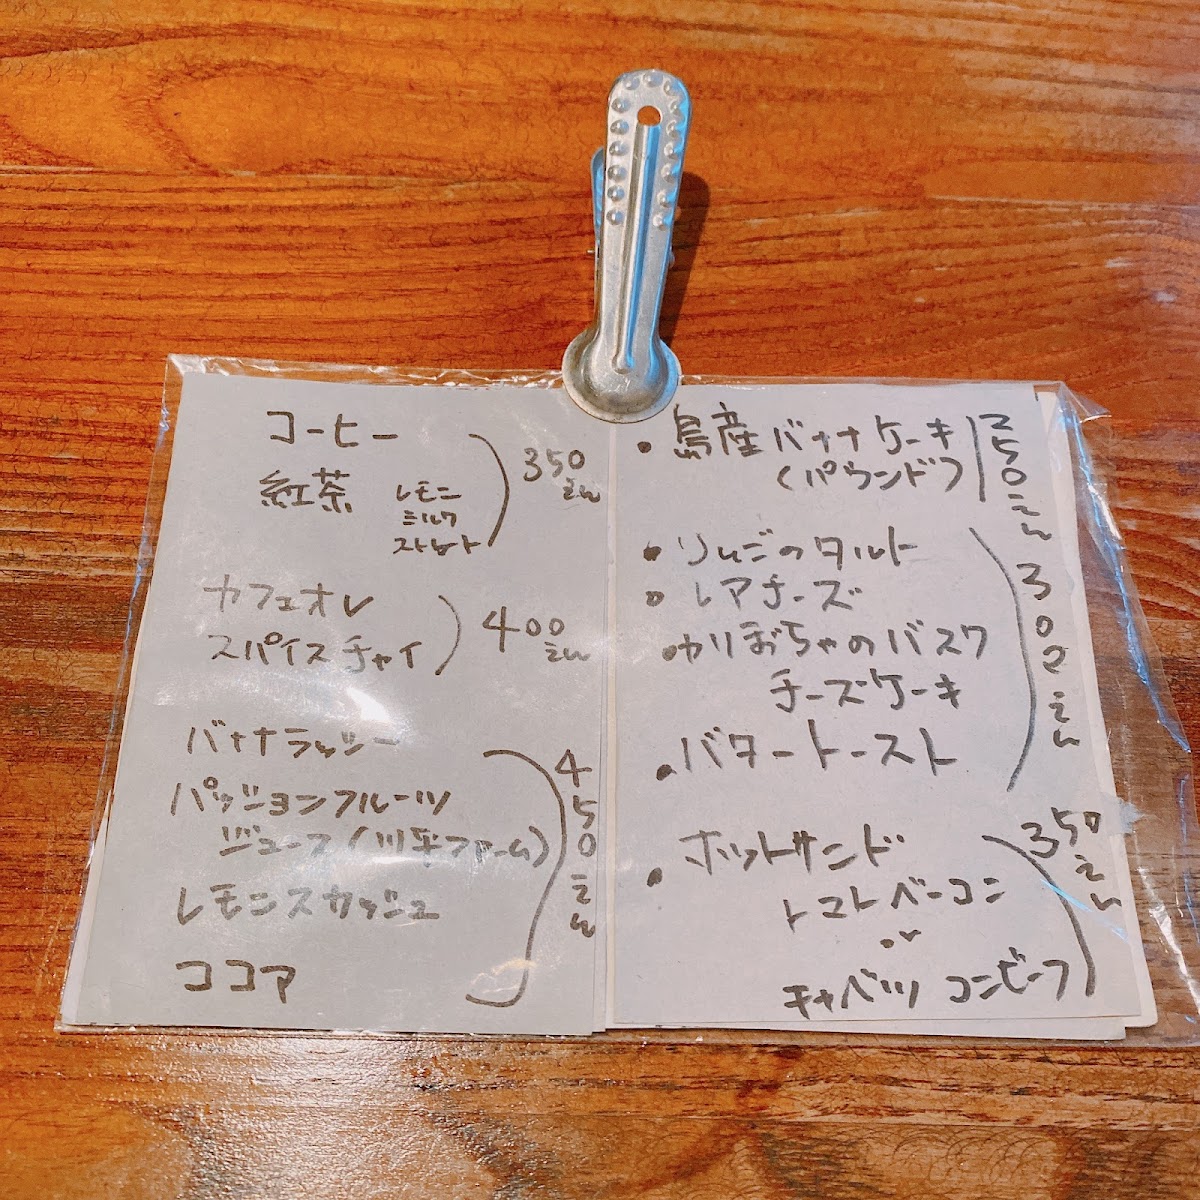 コーヒー
紅茶
レモン
ミルク
ストレート
350
えん
カフェオレ
スパイスチャイ
400
えん
バナナラッシー
パッションフルーツ
ジュース(川平ファーム)
レモンスカッシュ
ココア
450えん
・島産バナナケーキ
(パウンド)
250えん
・りんごのタルト
・レアチーズ
・かりぼちゃのバスク
チーズケーキ
・バタートースト
300えん
・ホットサンド
トマトベーコン
or
キャベツコンビーフ
350えん